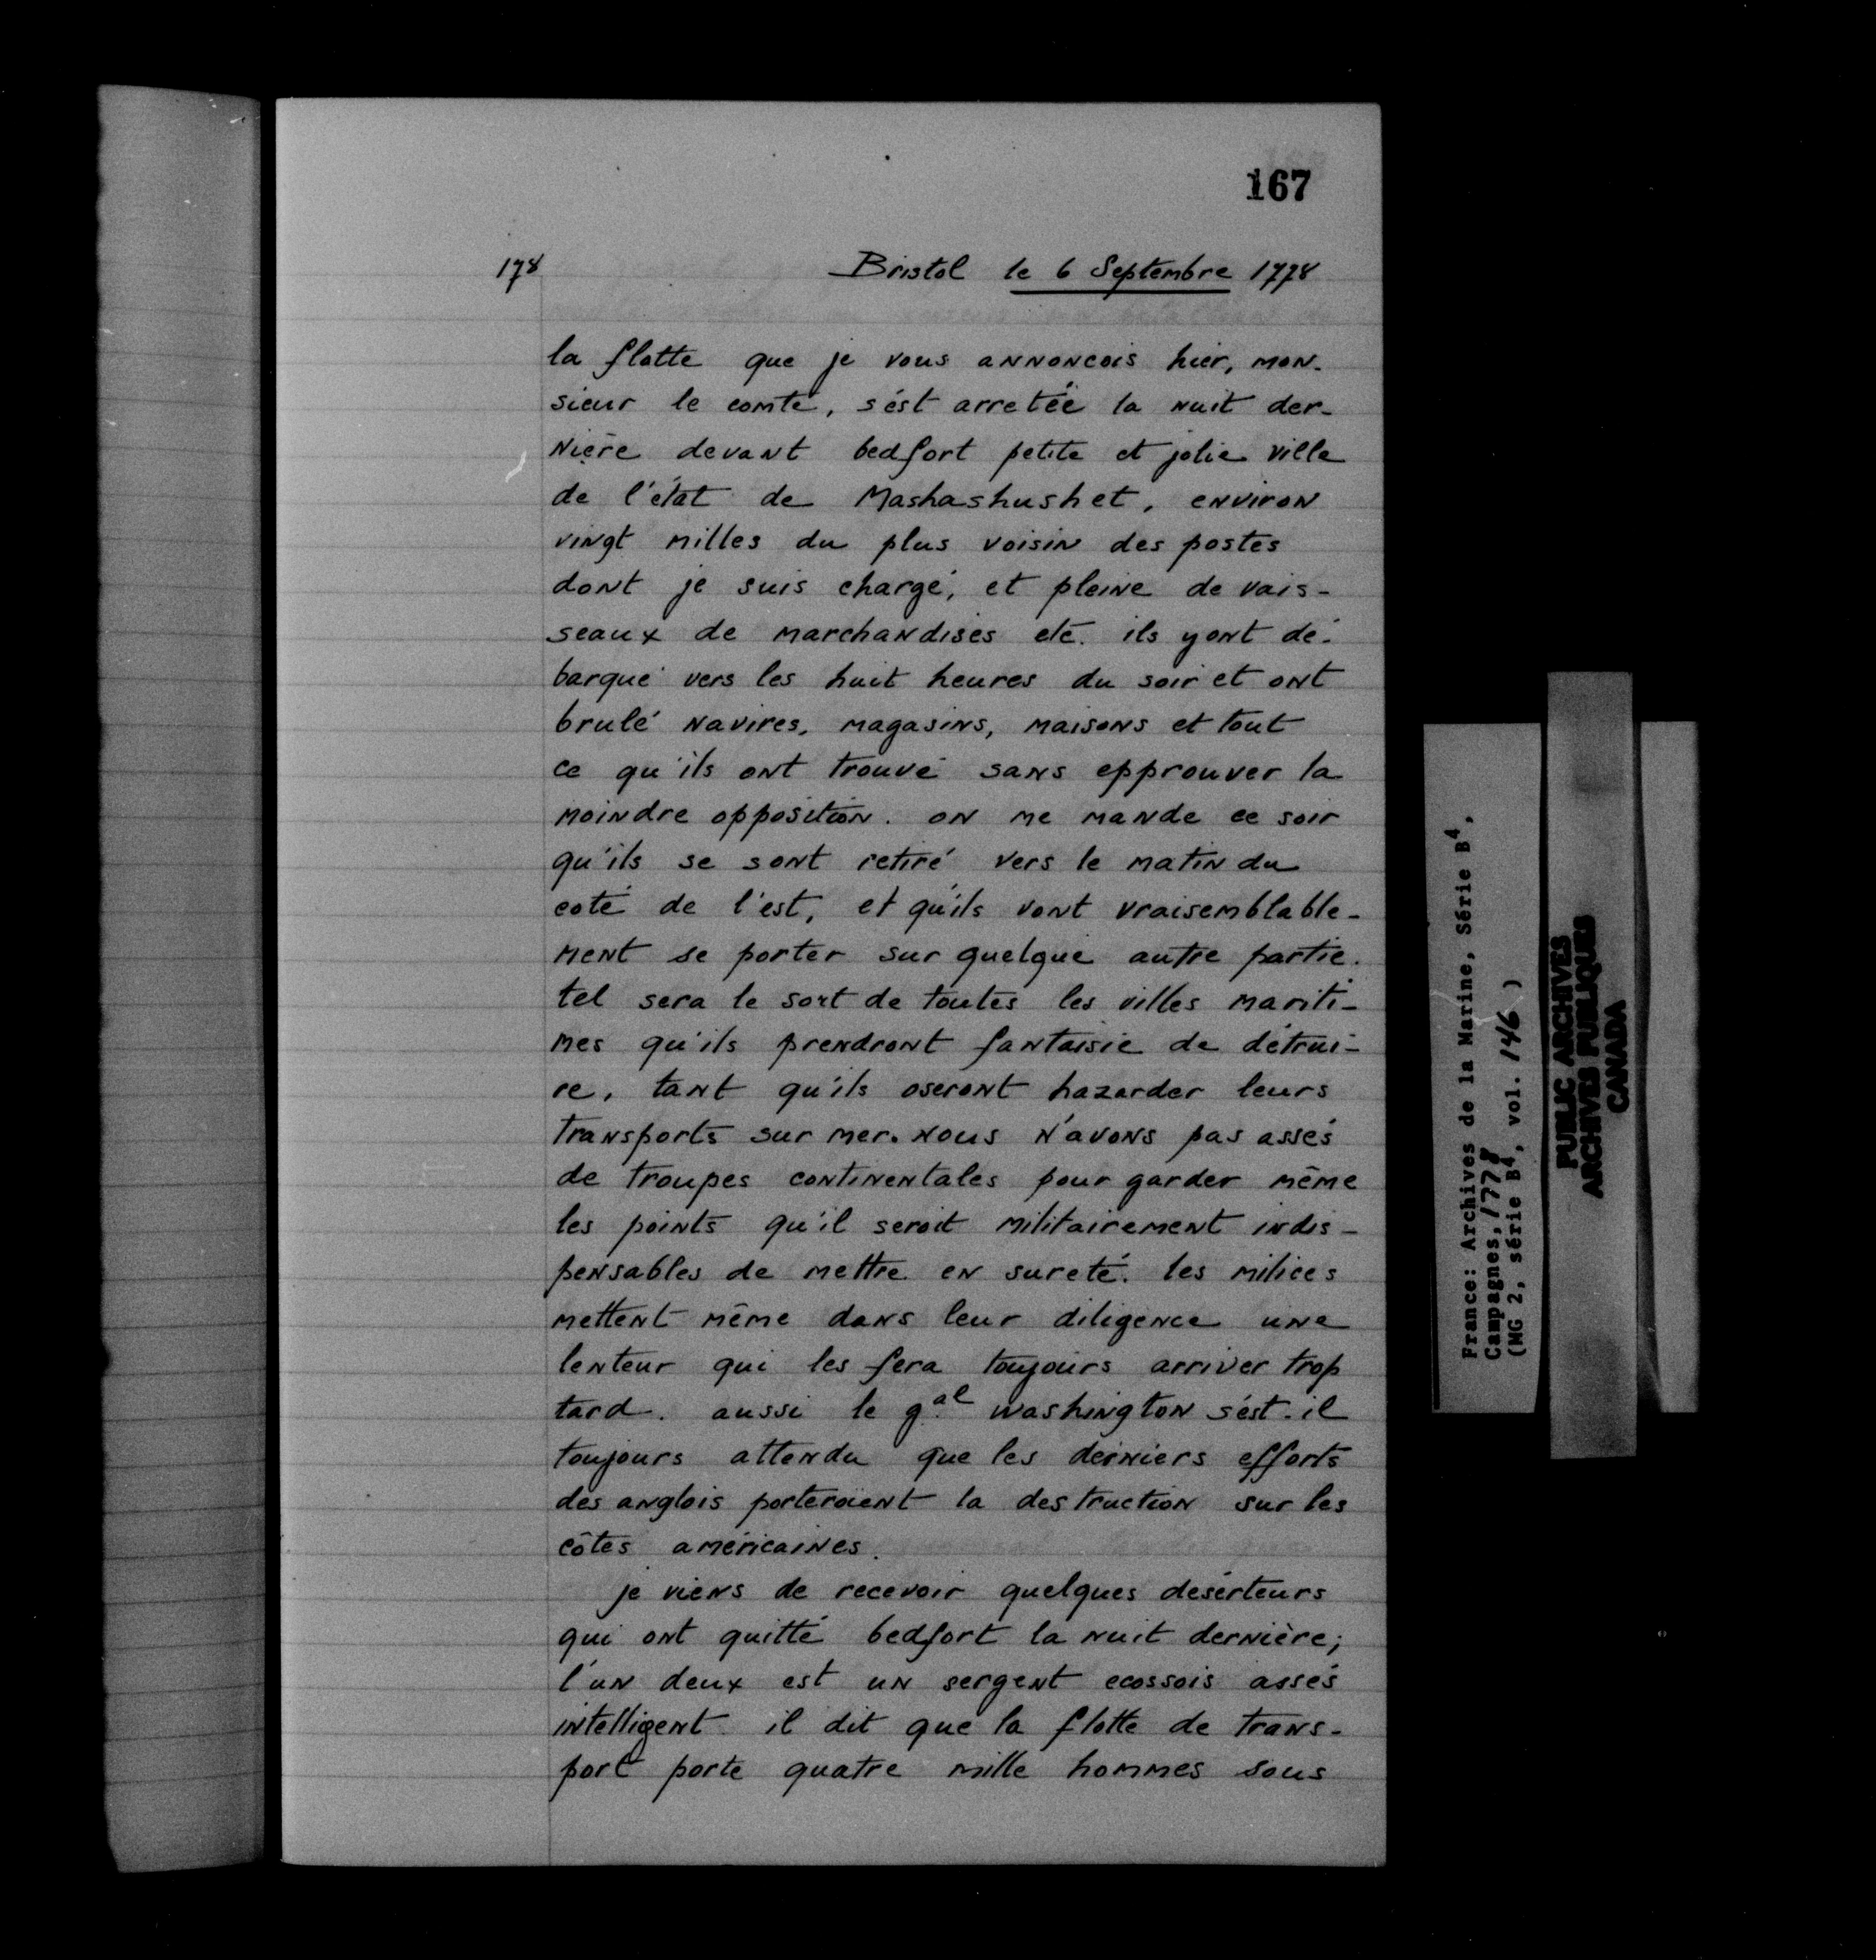 167
178 Bristol le 6 Septembre 1778
la flotte que je vous annoncois hier, mon-
sieur le comte, s'est arretée la nuit der-
nière devant bedfort petite et jolie ville
de l'état de Mashashushet, environ
vingt milles du plus voisin des postes
dont je suis chargé, et pleine de vais-
seaux de marchandises etc. ils y ont dé-
barqué vers les huit heures du soir et ont
brulé navires, magasins, maisons et tout
ce qu'ils ont trouvé sans epprouver la
moindre opposition. on me mande ce soir
qu'ils se sont retiré vers le matin du
coté de l'est, et qu'ils vont vraisemblable-
ment se porter sur quelque autre partie.
tel sera le sort de toutes les villes mariti-
mes qu'ils prendront fantaisie de détrui-
re, tant qu'ils oseront hazarder leurs
transports sur mer. nous n'avons pas assés
de troupes continentales pour garder même
les points qu'il seroit militairement indis-
pensables de mettre en sureté. les milices
mettent même dans leur diligence une
lenteur qui les fera toujours arriver trop
tard. aussi le g.al washington s'est-il
toujours attendu que les derniers efforts
des anglois porteroient la destruction sur les
côtes américaines.
je viens de recevoir quelques deserteurs
qui ont quitté bedfort la nuit dernière;
l'un deux est un sergent ecossois assés
intelligent il dit que la flotte de trans-
port porte quatre mille hommes sous
France: Archives de la Marine, Série B4,
Campagnes, 1778
(MG 2, série B4, vol. 146 )
PUBLIC ARCHIVES
ARCHIVES PUBLIQUES
CANADA